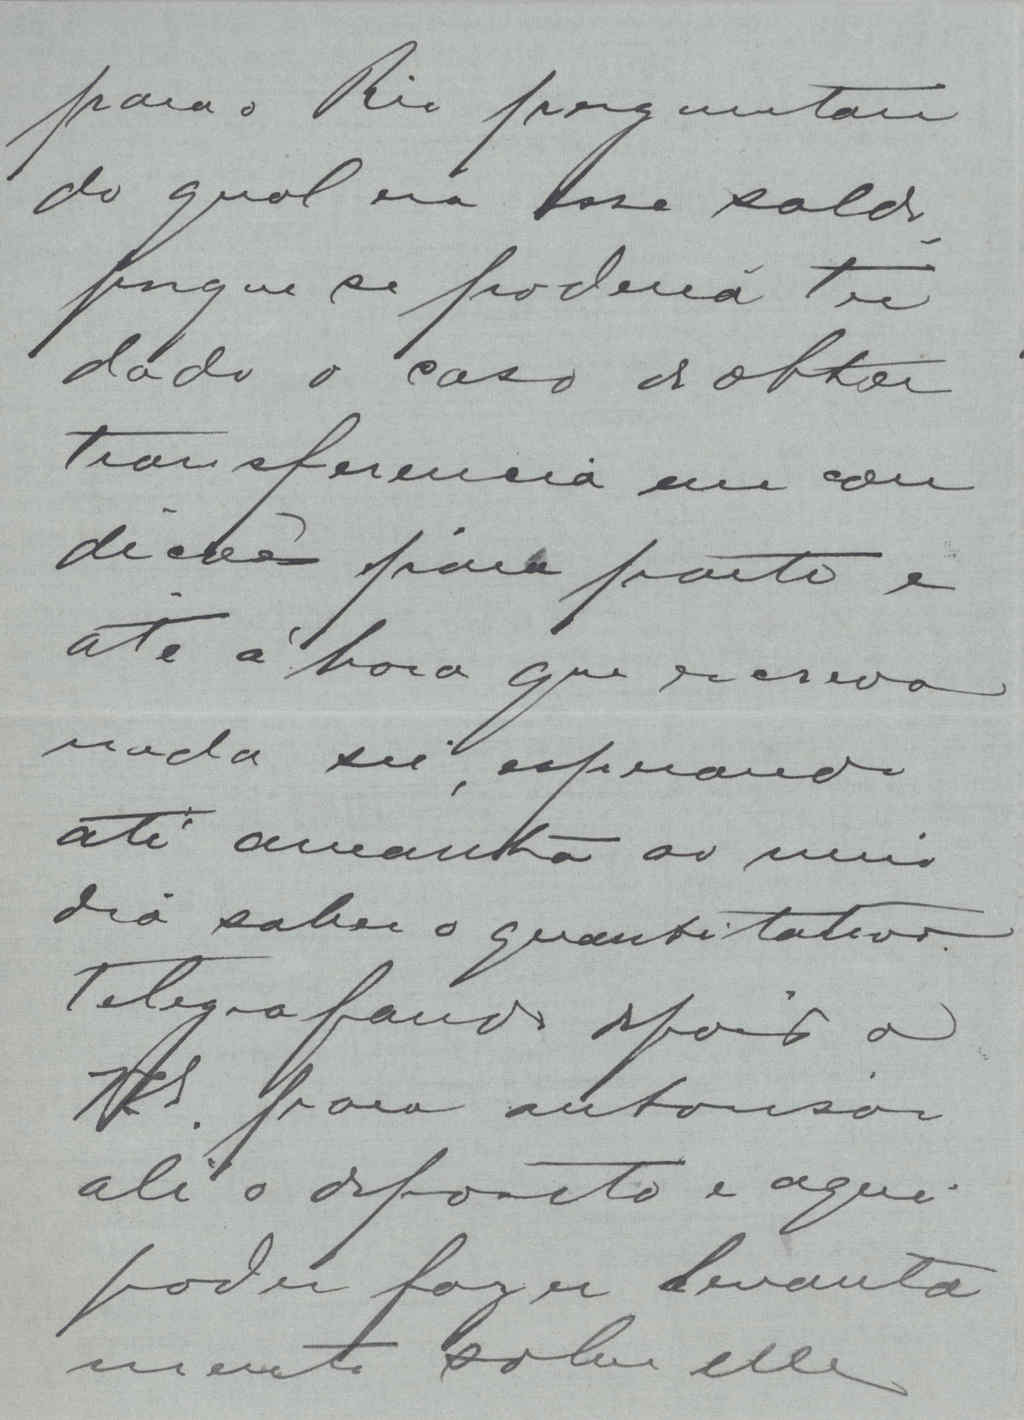 para o Rio perguntan
do qual era esse saldo,
porque se poderia ter
dado o caso de obter
transferencia em con
dicões para parte e
até á hora que escrevo
nada sei, esperando
até amanhã ao meio
dia saber o quantitativo.
Telegrafando depois a
V.ces. para autorisar
ali o deposito e aqui
poder fazer levanta
mento sobre elle